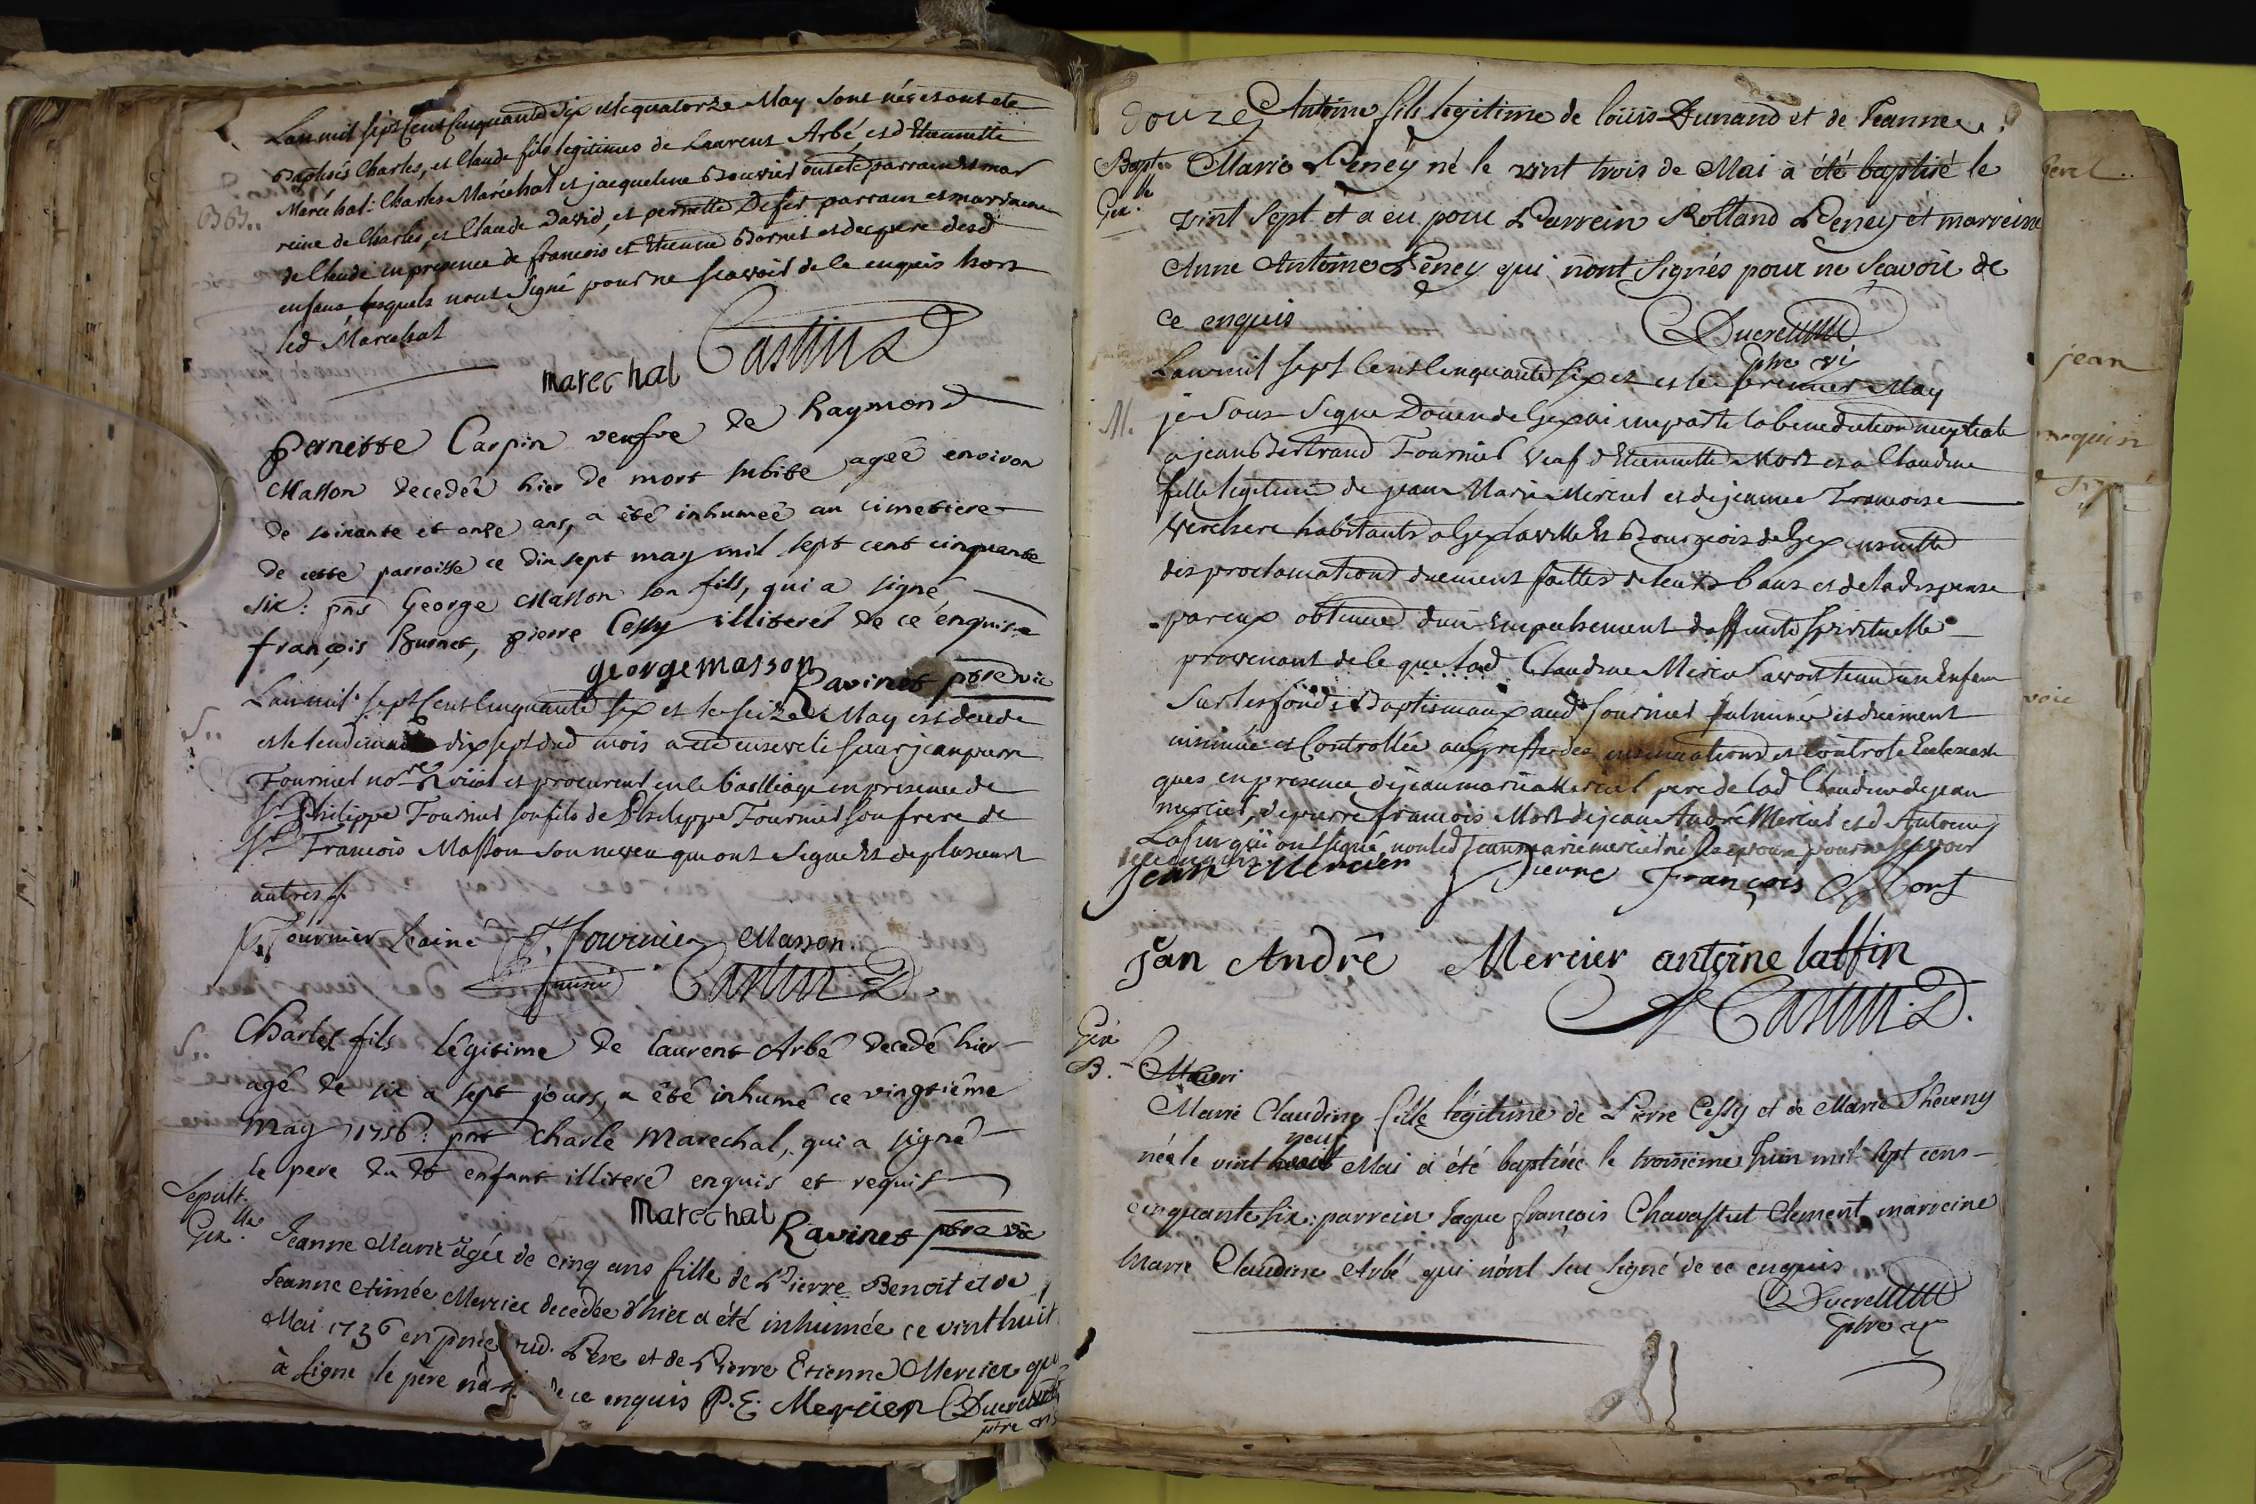 Lan mil sept Cent Cinquante Six et le quatorze May sont nés et ont été
Baptisés Charles, et Claude fils legitimes de Laurent Arbé, et d'Etiennette
Maréchal: Charles Maréchal et jacqueline Bouvier ont eté parrain et mar
reine de Charles, et Claude David, et pernette Defer parrain et marraine
de Claude en presence de francois et Etienne Bornet et du pere desd
enfans, lesquels n'ont Signé pour ne scavoir de le enquis hors
led Maréchal
marechal Castin D
pernette Carpin veufve de Raymond
Masson decedée hier de mort subite agée environ
de soixante et onze ans, a été inhumeé au cimetiere
de cette parroisse ce dix sept may mil sept cent cinquante
six: pns George Masson son fils, qui a signé
françois Burnet, pierre Cessy illiterés de ce enquis
george masson
Ravinet ptre vic
S..
Lan mil sept Cent Cinquante Six et le seize May est decedé
et le lendemain dix sept dud mois a eté enseveli Sieur jean pierre
Fournier no.re Royal et procureur en le bailliage en presence de
Sr Philippe Fournier son fils de Philippe Fournier Son frere de
Sr Francois Masson Son neveu qui ont Signé Et de plusieurs
autres
P. Fournier Lainé J. Fournier Masson
Castin D
S..
Charles fils légitime de laurent Arbé decedé hier
agé de six a sept jours, a été inhumé ce vingtiême
may 1756: pnt Charle Marechal, qui a signé
le pere du dt enfant illiteré enquis et requis
Marechal Ravinet ptre vic
Sepult.
Gex. lle
Jeanne Marie Agée de cinq ans fille de Pierre Benoit et de
Jeanne etimée Mercier decedée d'hier a été inhumée ce vint huit
Mai 1756 en pnce dud. Pere et de Pierre Etienne Mercier qui
à Signé le pere de ce enquis P. E. Mercier Ducret
ptre vi
douze Antoine fils legitime de louis Dunand et de Jeanne
Bapt..
Gex. lle
Marie Peney né le vint trois de Mai à été baptisé le
vint Sept et a eu pour Parrein Rolland Peney et marreine
Anne Antoine Peney qui n'ont Signés pour ne Scavoir de
ce enquis Ducret
ptre vi
M.
Lan mil sept Cent Cinquante Six et le premier May
je Sous Signé Doyen de Gex ai imparti la benediction nuptiale
a jean Bertrand Fournier Veuf d'Etiennette Mort et a Claudine
fille legitime de jean Marie Mercier et de jeanne Francoise
Verchere habitants a Gex la ville Et Bourgeois de Gex ensuitte
des proclamations duement faittes de leurs bans et de la dispense
par eux obtenue d'un Empechement d'affinité Spirituelle
provenant de le que lad Claudine Mercier avoit tenu un Enfan
Sur les fonds Baptismaux aud fournier fulminée et duement
insinuée et Controllée au Greffe des insinuations et Controle Ecclesiasti
ques en presence de jean marie Mercier pere de lad Claudine de jean
mercier, de pierre francois Mort de jean André Mercier et d'Antoine
Lafin qui ont Signé non led Jean marie mercier pour ne Scavoir
Jean Mercier Pierre François Mort
jan André Mercier antoine laffin
Castin D.
Gex
B.
Marie
Marie Claudine fille légitime de Pierre Cessy et de Marie Theveny
neuf
née le vint huit Mai à été baptisée le troisieme Juin mil sept cens
cinquante six: parrein Jaque françois Chavastut Clement, marreine
Marie Claudine Arbé qui n'ont Seu Signé de ce enquis
Ducret
ptre vi
jean
voie